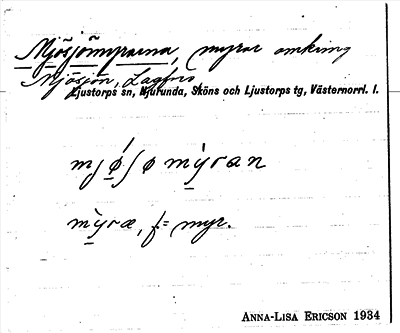 Mjösjömyrarna, myrar omkring
Mjösjön, Lagfors
Ljustorps sn, Njurunda, Sköns och Ljustorps tg, Västernorrl. l.
mjø̀ʃø mỳran
mỳræ, f= myr.
ANNA-LISA ERICSON 1934